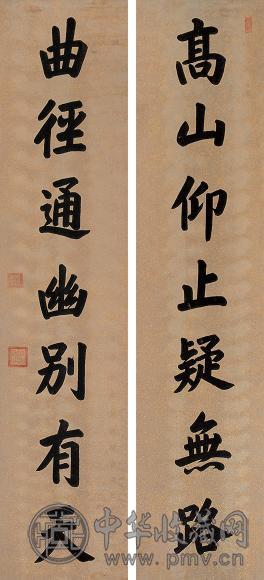 髙山仰止疑無路
曲徑通幽別有天
中华收藏网
www.pmv.cn